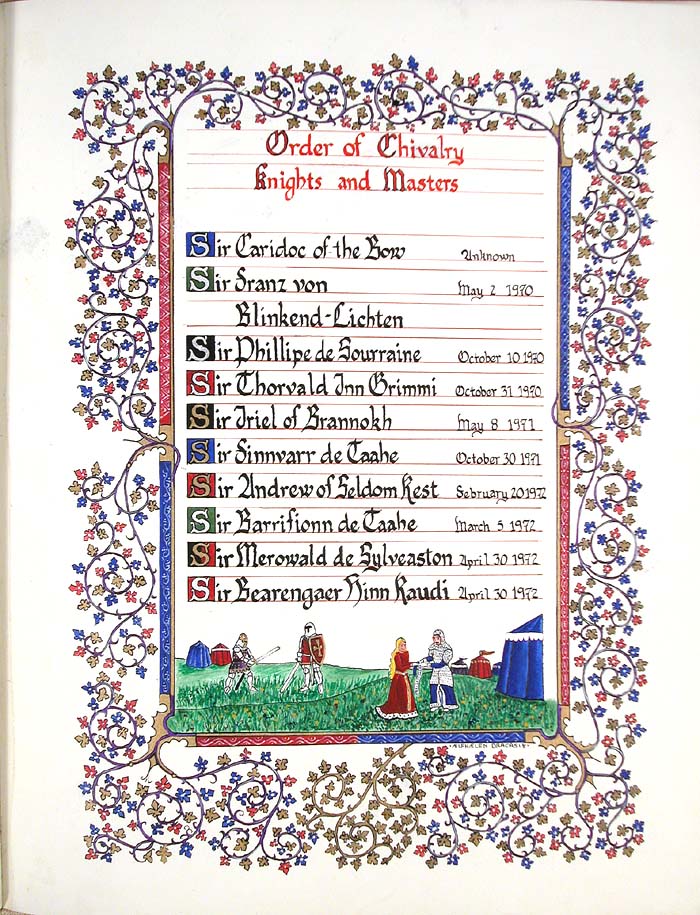 Order of Chivalry
Knights and Masters
Sir Caridoc of the Bow Unknown
Sir Franz von May 2 1970
Blinkend-Lichten
Sir Phillipe de Tourraine October 10 1970
Sir Thorvald Inn Grimmi October 31 1970
Sir Iriel of Brannokh May 8 1971
Sir Finnvarr de Taahe October 30 1971
Sir Andrew of Seldom Rest February 20 1972
Sir Barrifionn de Taahe March 5 1972
Sir Merowald de Sylveaston April 30 1972
Sir Bearengaer Hinn Raudi April 30 1972